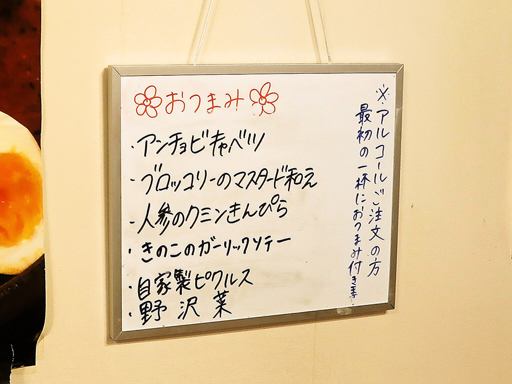 おつまみ
・アンチョビキャベツ
・ブロッコリーのマスタード和え
・人参のクミンきんぴら
・きのこのガーリックソテー
・自家製ピクルス
・野沢菜
※アルコールご注文の方
最初の一杯におつまみ付き〼